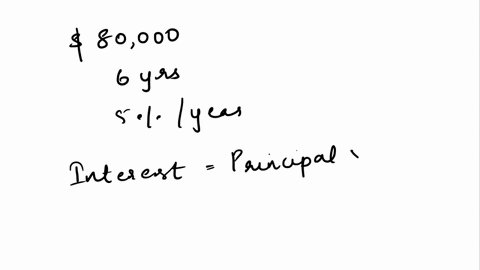 $ 80,000
6 yrs
5 % / year
Interest = Principal